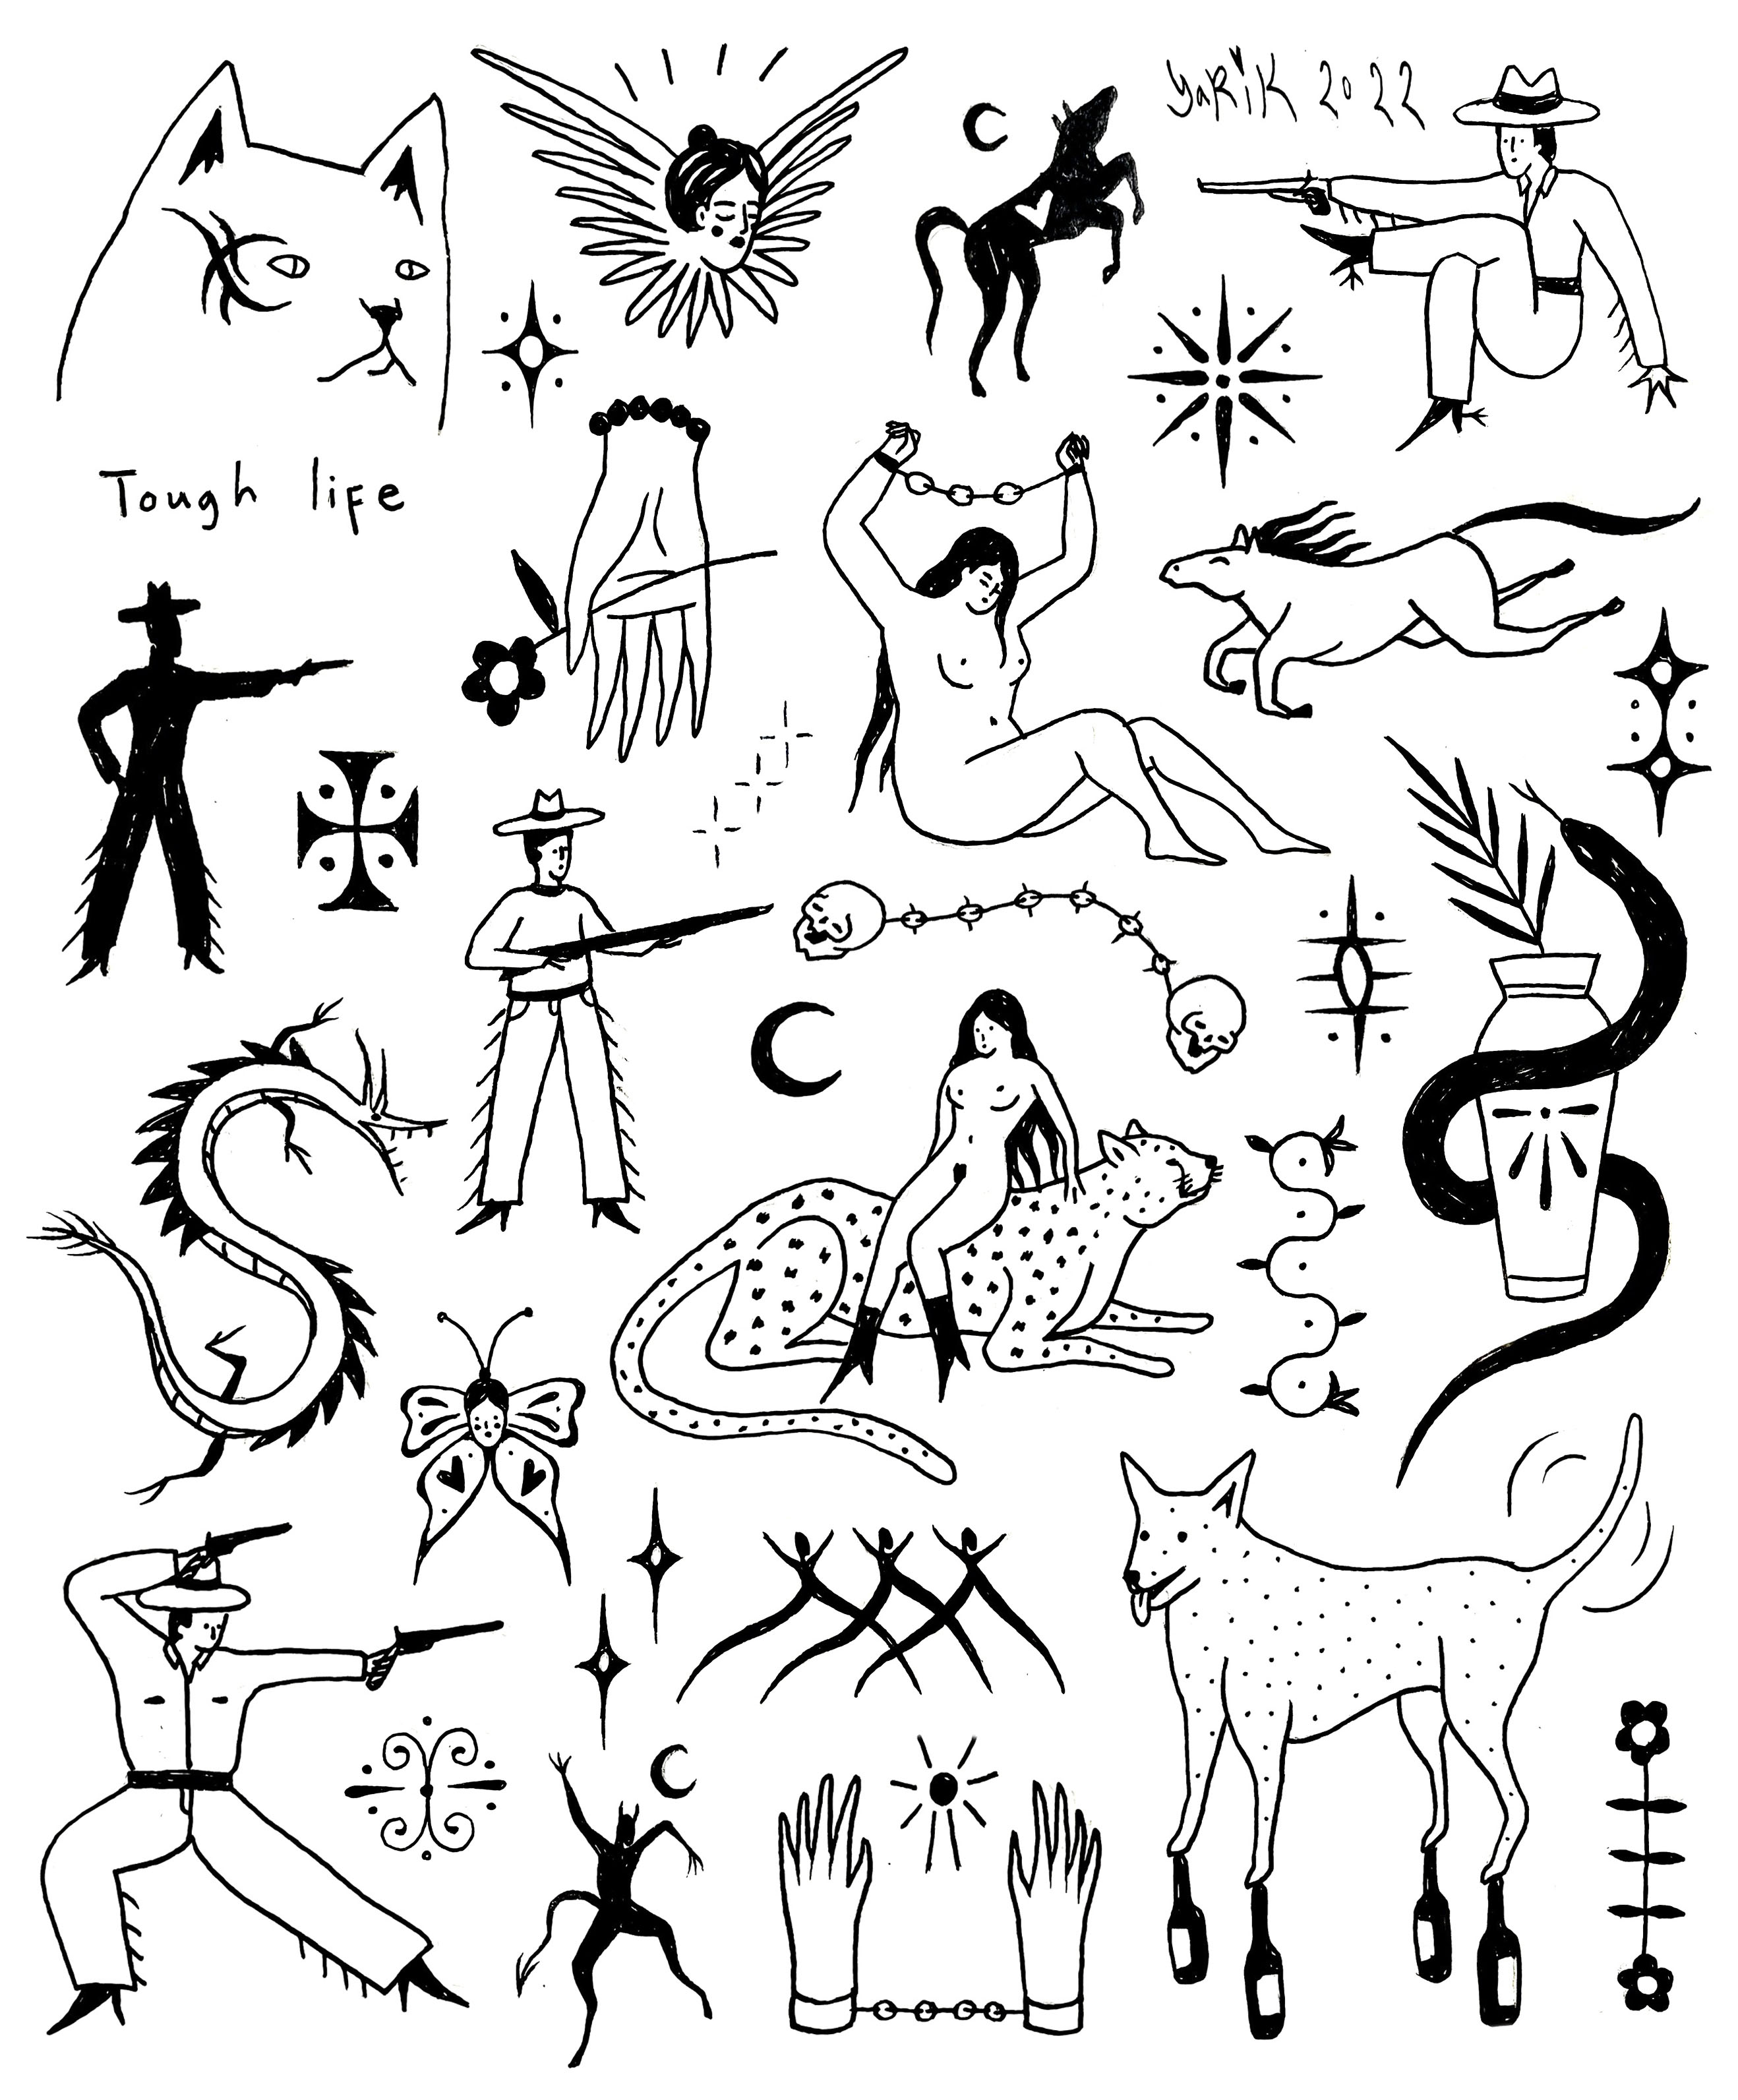 YaRiK 2022
Tough life